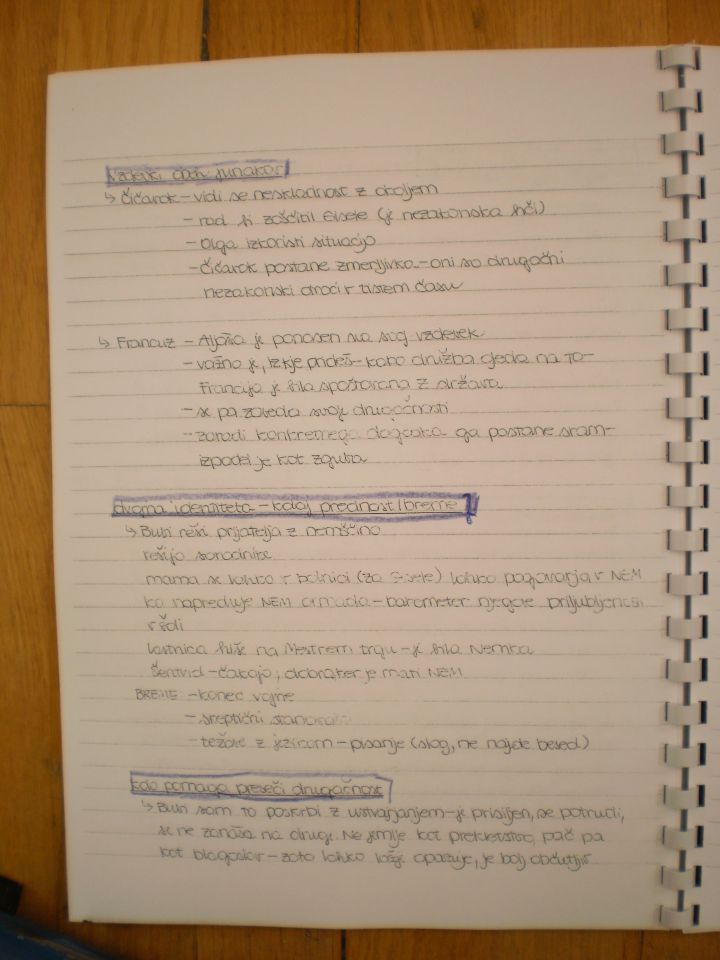 vzdevki obeh junakov
↳ Čičarok - vidi se neskladnost z okoljem
- rad bi zaščitil Gisele (je nezakonska hči)
- Olga izkoristi situacijo
- Čičarok postane zmerljivka - oni so drugačni
nezakonski otroci v tistem času
↳ Francuz - Aljoša je ponosen na svoj vzdevek
- važno je, iz kje prideš - kako družba gleda na to -
Francija je bila spoštovana z država
- se pa zaveda svoje drugačnosti
- zaradi konkretnega dogodka ga postane sram -
izpadel je kot zguba
dvojna identiteta - kdaj prednost/breme?
↳ Bubi reši prijatelja z nemščino
rešijo sorodnike
mama se lahko v bolnici (za Gisele) lahko pogovarja v NEM
ko napreduje NEM armada - barometer njegove priljubljenosti
v šoli
lastnica hiše na Mestnem trgu - je bila Nemka
Šentvid - čakajo, dobro ker je mati NEM
BREME - konec vojne
- skeptični
- težave z jezikom - pisanje (slog, ne najde besed)
kdo pomaga preseči drugačnost
↳ Bubi sam to poskrbi z ustvarjanjem - je prisiljen, se potrudi,
se ne zanaša na druge. Ne jemlje kot prekletstvo, pač pa
kot blagoslov - zato lahko lažje opazuje, je bolj občutljiv